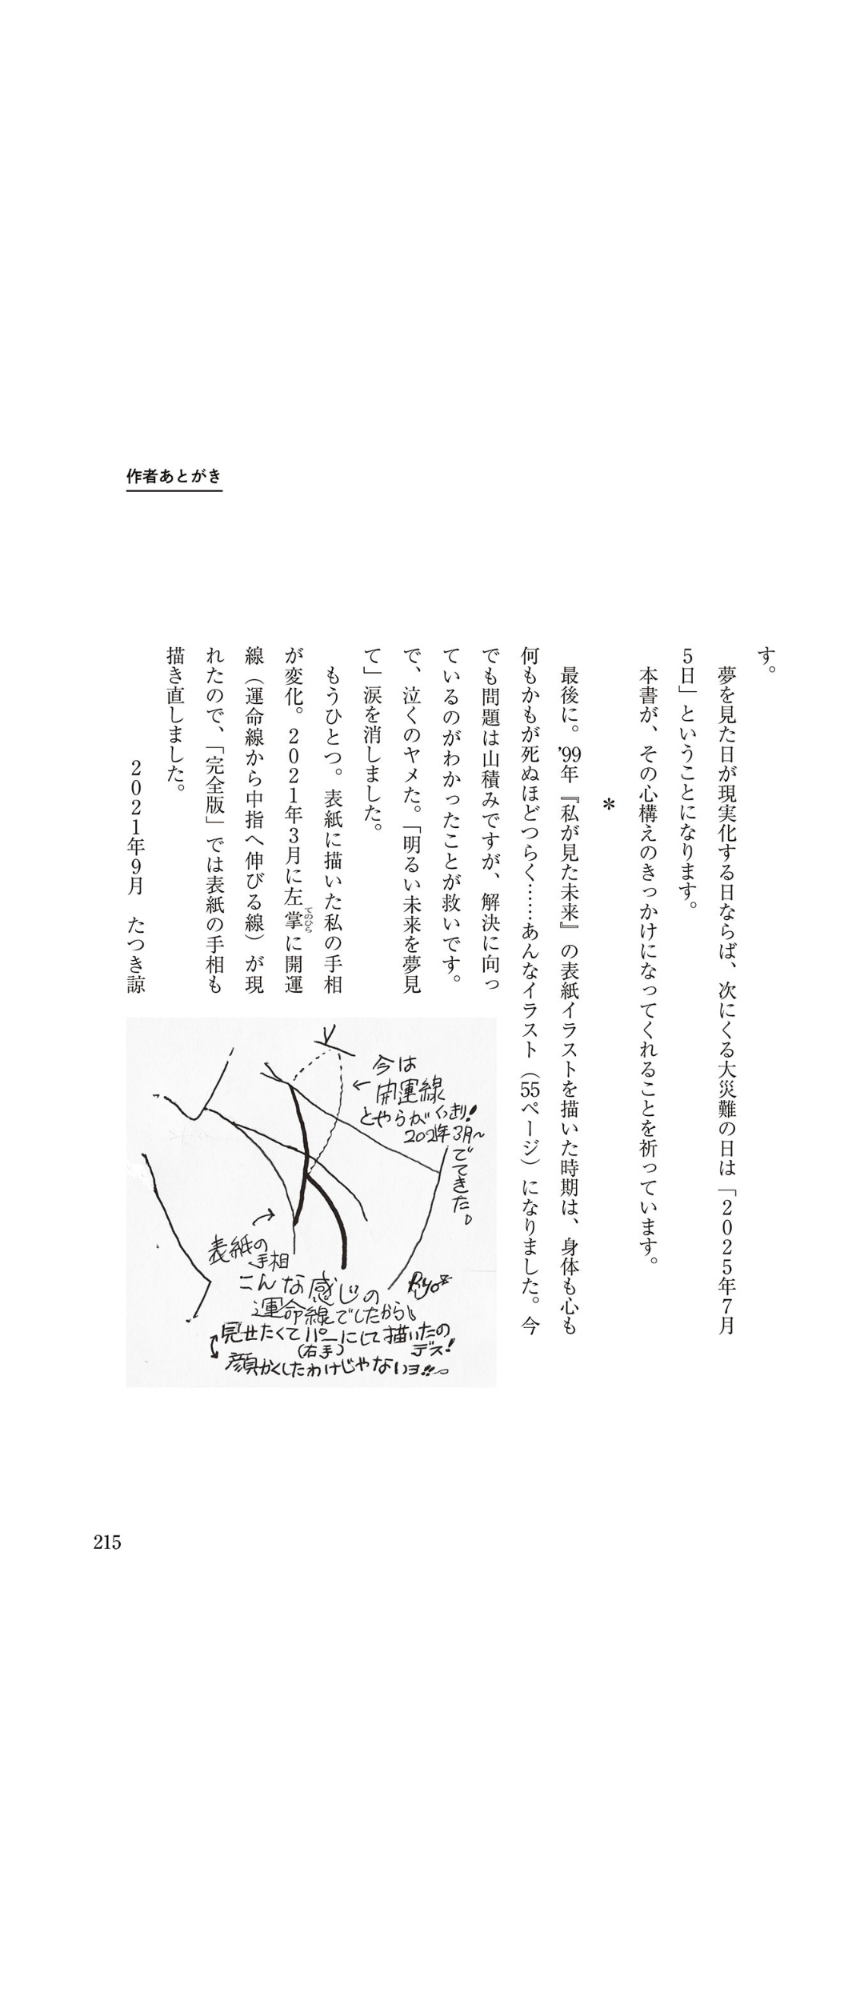 作者あとがき
す。
　夢を見た日が現実化する日ならば、次にくる大災難の日は「2025年7月
5日」ということになります。
　本書が、その心構えのきっかけになってくれることを祈っています。
＊
　最後に。'99年『私が見た未来』の表紙イラストを描いた時期は、身体も心も
何もかもが死ぬほどつらく……あんなイラスト（55ページ）になりました。今
でも問題は山積みですが、解決に向っ
ているのがわかったことが救いです。
で、泣くのヤメた。「明るい未来を夢見
て」涙を消しました。
　もうひとつ。表紙に描いた私の手相
が変化。2021年3月に左掌に開運
てのひら
線（運命線から中指へ伸びる線）が現
れたので、「完全版」では表紙の手相も
描き直しました。
2021年9月　たつき諒
今は
開運線
とやらがくっきり!
2021年3月〜
でてきた。
表紙の
手相
こんな感じの
運命線でしたから
見せたくてパーにして描いたの
(右手)
デス!
顔かくしたわけじゃないヨ!!
215